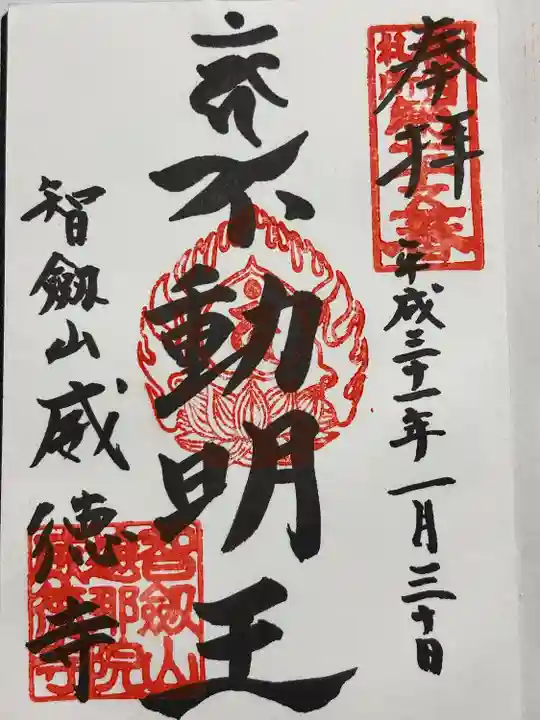 奉拝
平成三十一年一月三十日
不動明王
智劔山威徳寺
智劔山
遮那院
威徳寺